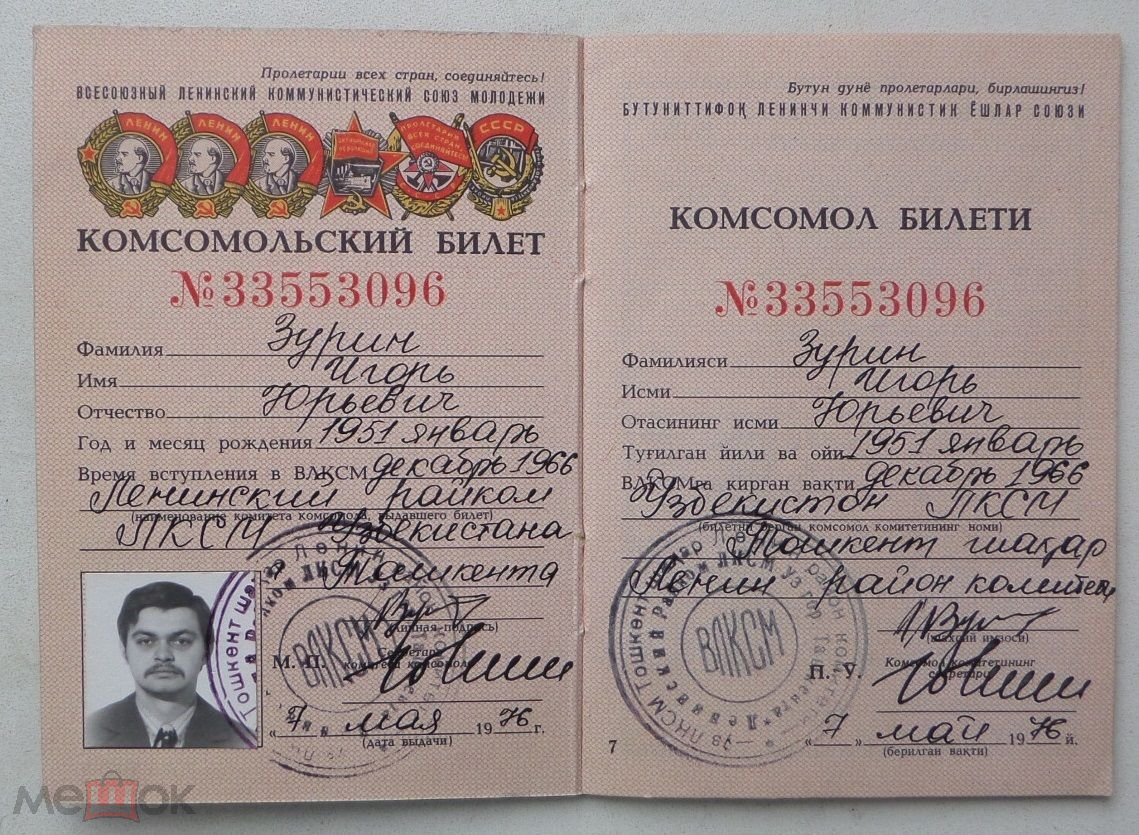 Пролетарии всех стран, соединяйтесь!
ВСЕСОЮЗНЫЙ ЛЕНИНСКИЙ КОММУНИСТИЧЕСКИЙ СОЮЗ МОЛОДЕЖИ
ЛЕНИН ЛЕНИН ЛЕНИН ОКТЯБРЬСКАЯ РЕВОЛЮЦИЯ ПРОЛЕТАРИИ ВСЕХ СТРАН, СОЕДИНЯЙТЕСЬ! СССР
КОМСОМОЛЬСКИЙ БИЛЕТ
№33553096
Фамилия Зурин
Имя Игорь
Отчество Юрьевич
Год и месяц рождения 1951 январь
Время вступления в ВЛКСМ декабрь 1966
Ленинский райком
(наименование комитета комсомола, выдавшего билет)
ЛКСМ Узбекистана
Ташкента
(личная подпись)
М. П.
Секретарь
комитета комсомола
ВЛКСМ
„7" мая 1976 г.
(дата выдачи)
Бутун дунё пролетарлари, бирлашингиз!
БУТУНИТТИФОҚ ЛЕНИНЧИ КОММУНИСТИК ЁШЛАР СОЮЗИ
КОМСОМОЛ БИЛЕТИ
№33553096
Фамилияси Зурин
Исми Игорь
Отасининг исми Юрьевич
Туғилган йили ва ойи 1951 январь
ВЛКСМга кирган вақти декабрь 1966
Ўзбекистон ЛКСМ
(билетни берган комсомол комитетининг номи)
Тошкент шаҳар
Ленин район комитети
(шахсий имзоси)
П. У.
Комсомол комитетининг
секретари
ВЛКСМ
„7" май 1976 й.
(берилган вақти)
7
мешок